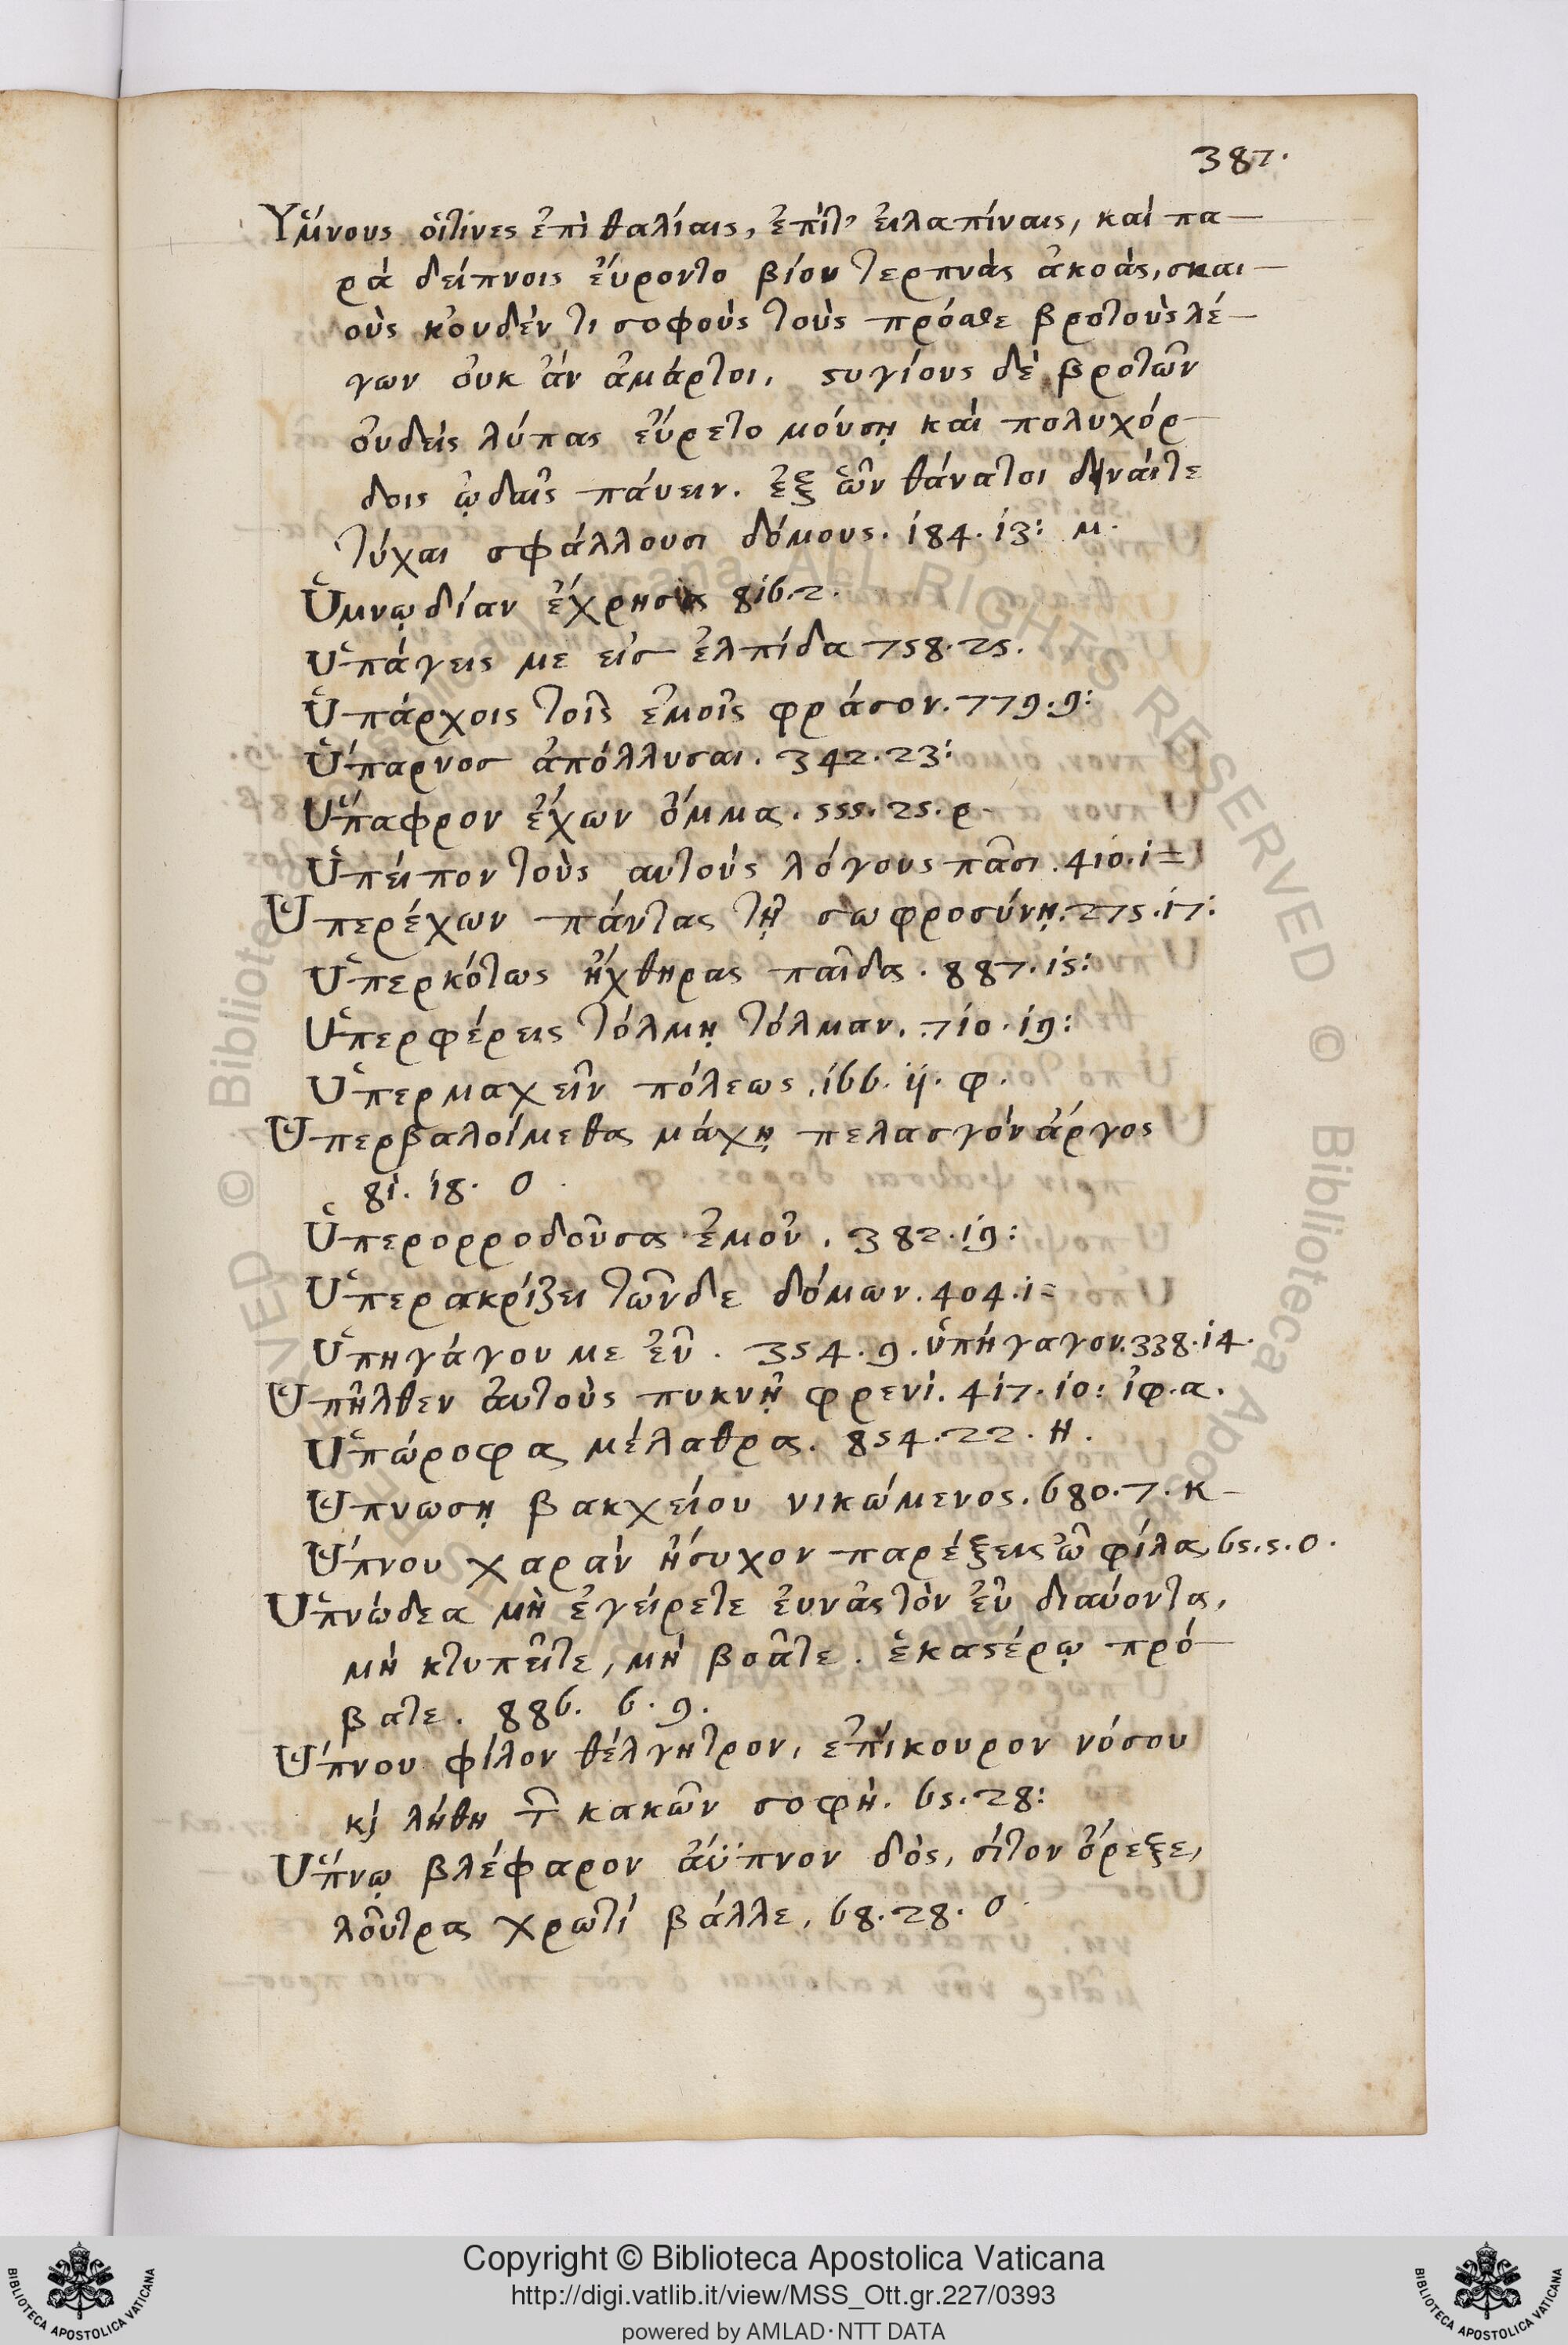 387.
Ὑμνους οἵτινες ἐπὶ θαλίαις, ἐπίτ' εἰλαπίναις, καὶ πα-
ρὰ δείπνοις εὕροντο βίου τερπνὰς ἀκοὰς, σκαι-
οὺς κ'οὐδέν τι σοφοὺς τοὺς πρόσθε βροτοὺς λέ-
γων οὐκ ἂν ἁμάρτοι, ϛυγίους δὲ βροτῶν
οὐδεὶς λύπας εὕρετο μούσῃ καὶ πολυχόρ-
δοις ᾠδαῖς παύειν. ἐξ ὧν θάνατοι δειναίτε
τύχαι σφάλλουσι δόμους. 184. 13: μ.
Ὑμνῳδίαν ἔχρησας 816. 2.
Ὑπάγεις με εἰσ ἐλπίδα 758. 25.
Ὑπάρχοις τοῖς ἐμοῖς φράσον. 779. 9:
Ὕπαρνοσ ἀπόλλυσαι. 342. 23:
Ὕπαφρον ἔχων ὄμμα. 555. 25. ρ.
Ὑπεῖπον τοὺς αὐτοὺς λόγους πᾶσι. 410. 1
Ὑπερέχων πάντας τῇ σωφροσύνῃ. 275. 17:
Ὑπερκότως ἤχθηρας παῖδας. 887. 15:
Ὑπερφέρεις τόλμῃ τόλμαν. 710. 19:
Ὑπερμαχεῖν πόλεως. 166. 11. φ.
Ὑπερβαλοίμεθα μάχῃ πελασγὸν ἄργος
81. 18. ο.
Ὑπερορροδοῦσα ἐμοῦ. 382. 19:
Ὑπερακρίζει τῶνδε δόμων. 404. 1
Ὑπηγάγου με εὖ. 354. 9. ὑπήγαγον. 338. 14.
Ὑπῆλθεν αὐτοὺς πυκνῇ φρενί. 417. 10: ἰφ. α.
Ὑπώροφα μέλαθρα. 854. 22. Η.
Ὑπνωσῃ βακχείου νικώμενος. 680. 7. κ-
Ὕπνου χαρὰν ἥσυχον παρέξεις ὦ φίλα, 65. 5. ο.
Ὑπνώδεα μὴ ἐγείρετε εὐνᾶς τὸν εὖ διαύοντα,
μὴ κτυπεῖτε, μὴ βοᾶτε. ἑκαϛέρῳ πρό-
βατε. 886. 6. 9.
Ὕπνου φίλον θέλγητρον, ἐπίκουρον νόσου
κϳ λήθη τ̑ κακῶν σοφή. 65. 28:
Ὕπνῳ βλέφαρον ἄϋπνον δὸς, σῖτον ὄρεξε,
λοῦτρα χρωτὶ βάλλε, 68. 28. ο.
Copyright © Biblioteca Apostolica Vaticana
http://digi.vatlib.it/view/MSS_Ott.gr.227/0393
powered by AMLAD·NTT DATA